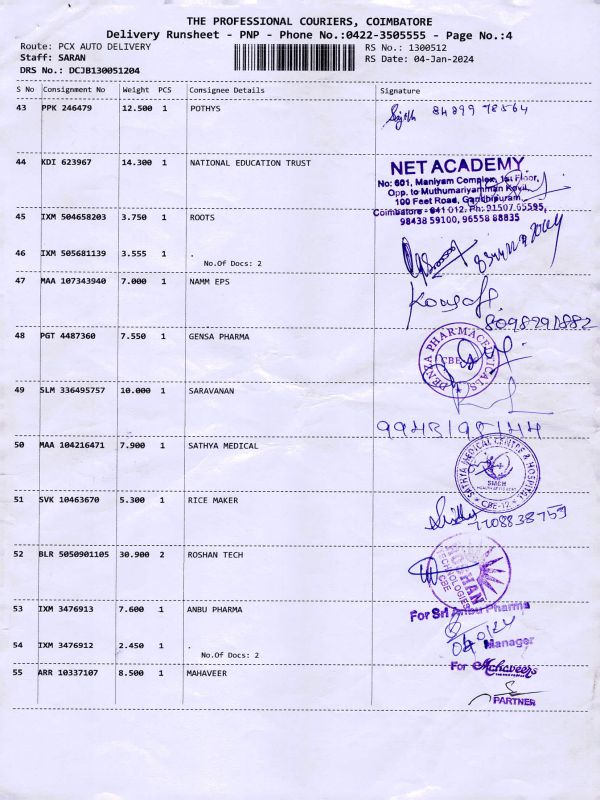 THE PROFESSIONAL COURIERS, COIMBATORE
Delivery Runsheet - PNP - Phone No.:0422-3505555 - Page No.:4
Route: PCX AUTO DELIVERY RS No.: 1300512
Staff: SARAN RS Date: 04-Jan-2024
DRS No.: DCJB130051204
S No Consignment No Weight PCS Consignee Details Signature
43 PPK 246479 12.500 1 POTHYS 84899 78564
44 KDI 623967 14.300 1 NATIONAL EDUCATION TRUST
NET ACADEMY
No: 601, Maniyam Complex, 1st Floor,
Opp. to Muthumariyamman Kovil,
100 Feet Road, Gandhipuram,
Coimbatore - 641 012. Ph: 91507 65595,
98438 59100, 96558 88835
45 IXM 504658203 3.750 1 ROOTS
46 IXM 505681139 3.555 1 .
No.Of Docs: 2
47 MAA 107343940 7.000 1 NAMM EPS
8098291882
48 PGT 4487360 7.550 1 GENSA PHARMA
PHARMACEUTICALS
CBE
49 SLM 336495757 10.000 1 SARAVANAN
50 MAA 104216471 7.900 1 SATHYA MEDICAL
SATHYA MEDICAL CENTRE & HOSPITAL
SMCH
CBE-12
51 SVK 10463670 5.300 1 RICE MAKER
7708838759
52 BLR 5050901105 30.900 2 ROSHAN TECH
ROSHAN
TECHNOLOGIES
CBE
53 IXM 3476913 7.600 1 ANBU PHARMA
For Sri Anbu Pharma
54 IXM 3476912 2.450 1 .
Manager
No.Of Docs: 2
55 ARR 10337107 8.500 1 MAHAVEER
For Mahaveers
PARTNER